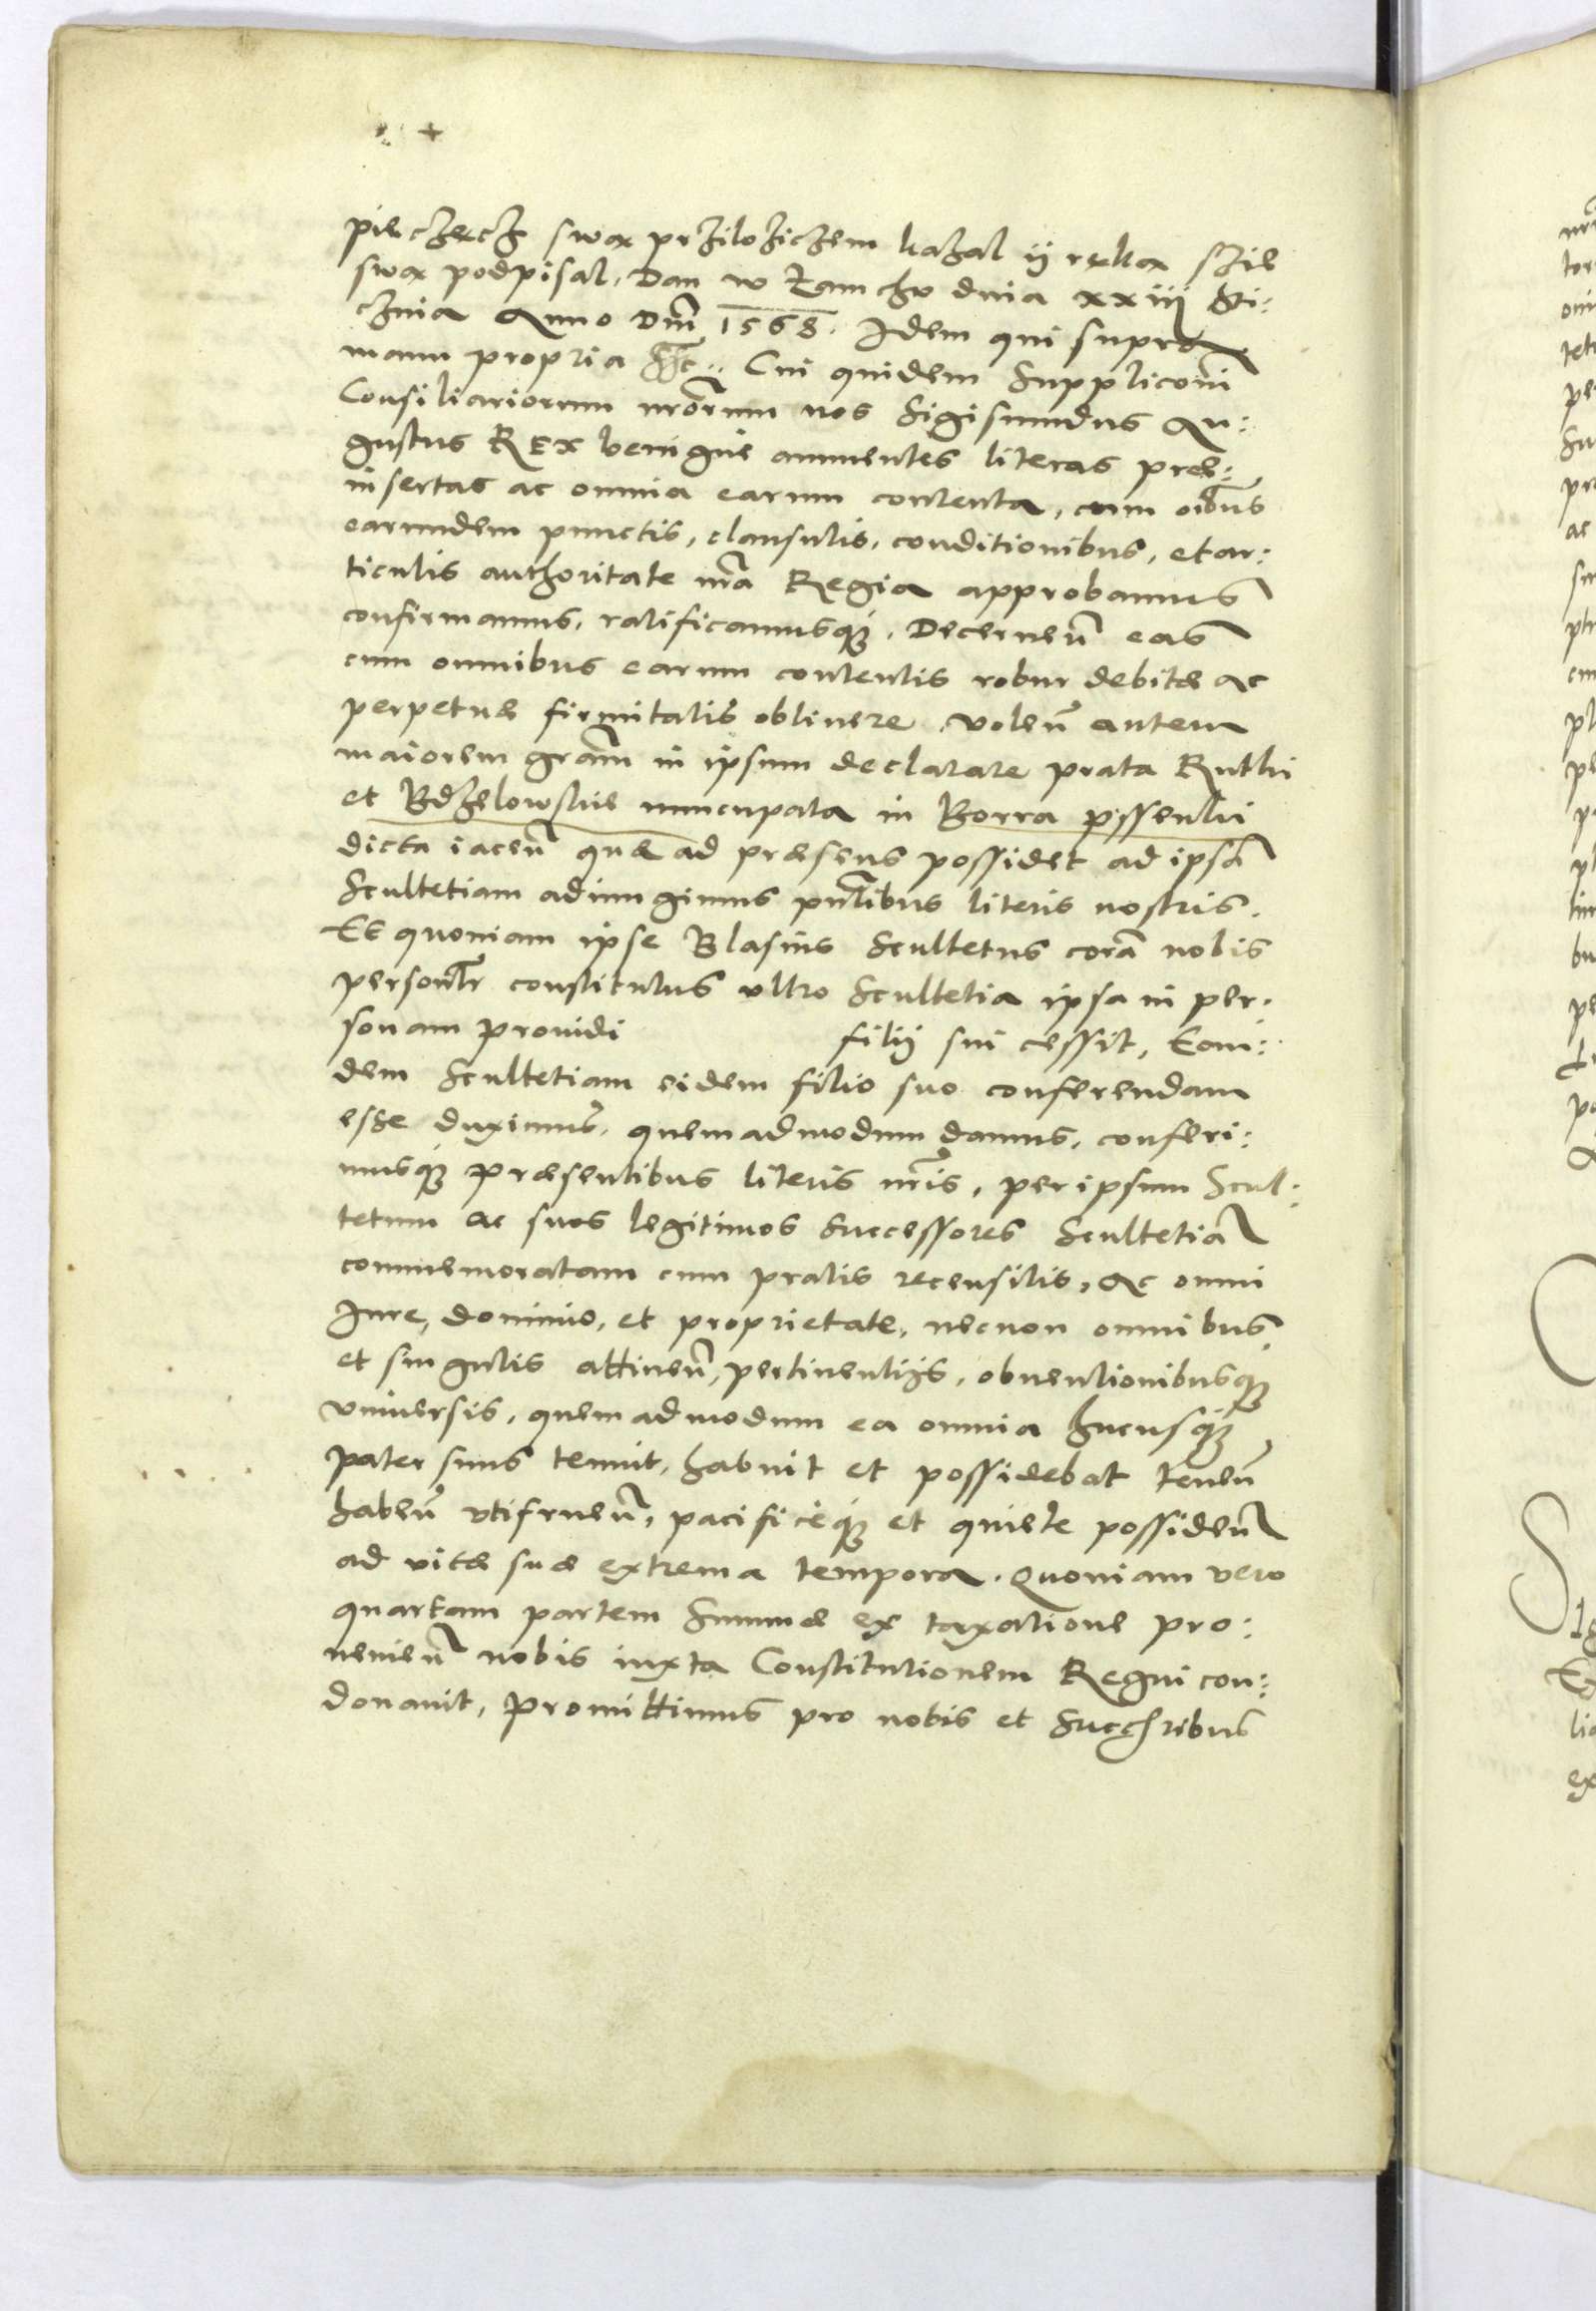 pieczęcz swą przilozicżem kazal ij ręką szie
swą podpisal. Dan w Łanczu dnia xxiiij Sti:
cznia Anno Dni 1568. Idem qui supra
manu propria sst. Cui quidem Suppliconi
Consiliariorum nrorum nos Sigismundus Au:
gustus REX benigne annuentes literas prae:
insertas ac omnia earum contenta, cum oibus
earundem punctis, clausulis, conditionibus, et ar:
ticulis authoritate nra Regia approbamus
confirmamus, ratificamusque. Decernen eas
cum omnibus earum contentis robur debitae ac
perpetuae firmitatis obtinere. Volen autem
maiorem gram in ipsum declarare prata Ruthi
et Bdzelowskie nuncupata in Borra pssentri
dicta iacen quae ad praesens possidet ad ipsa
Scultetiam adiungimus pntibus literis nostris.
Et quoniam ipse Blasius Scultetus cora nobis
personlr constitutus ultro Scultetia ipsa in per:
sonam prouidi filij sui cessit, Eani:
dem Scultetiam eidem filio suo conferendam
esse duximus, quemadmodum damus, conferi:
musque praesentibus literis nris, per ipsum Scul:
tetum ac suos legitimos Successores Scultetia
commemoratam cum pratis recensitis, ac omni
Iure, dominio, et proprietate, necnon omnibus
et singulis attinen, pertinentijs, obuentionibusque
vniuersis, quemadmodum ea omnia hucusque
pater suus tenuit, habuit et possidebat tenen
haben vtifruen, pacificeque et quiete possiden
ad vitae suae extrema tempora. Quoniam vero
quartam partem Summae ex taxatione pro:
uenien nobis iuxta Constitutionem Regni con:
donauit, Promittimus pro nobis et Succribus